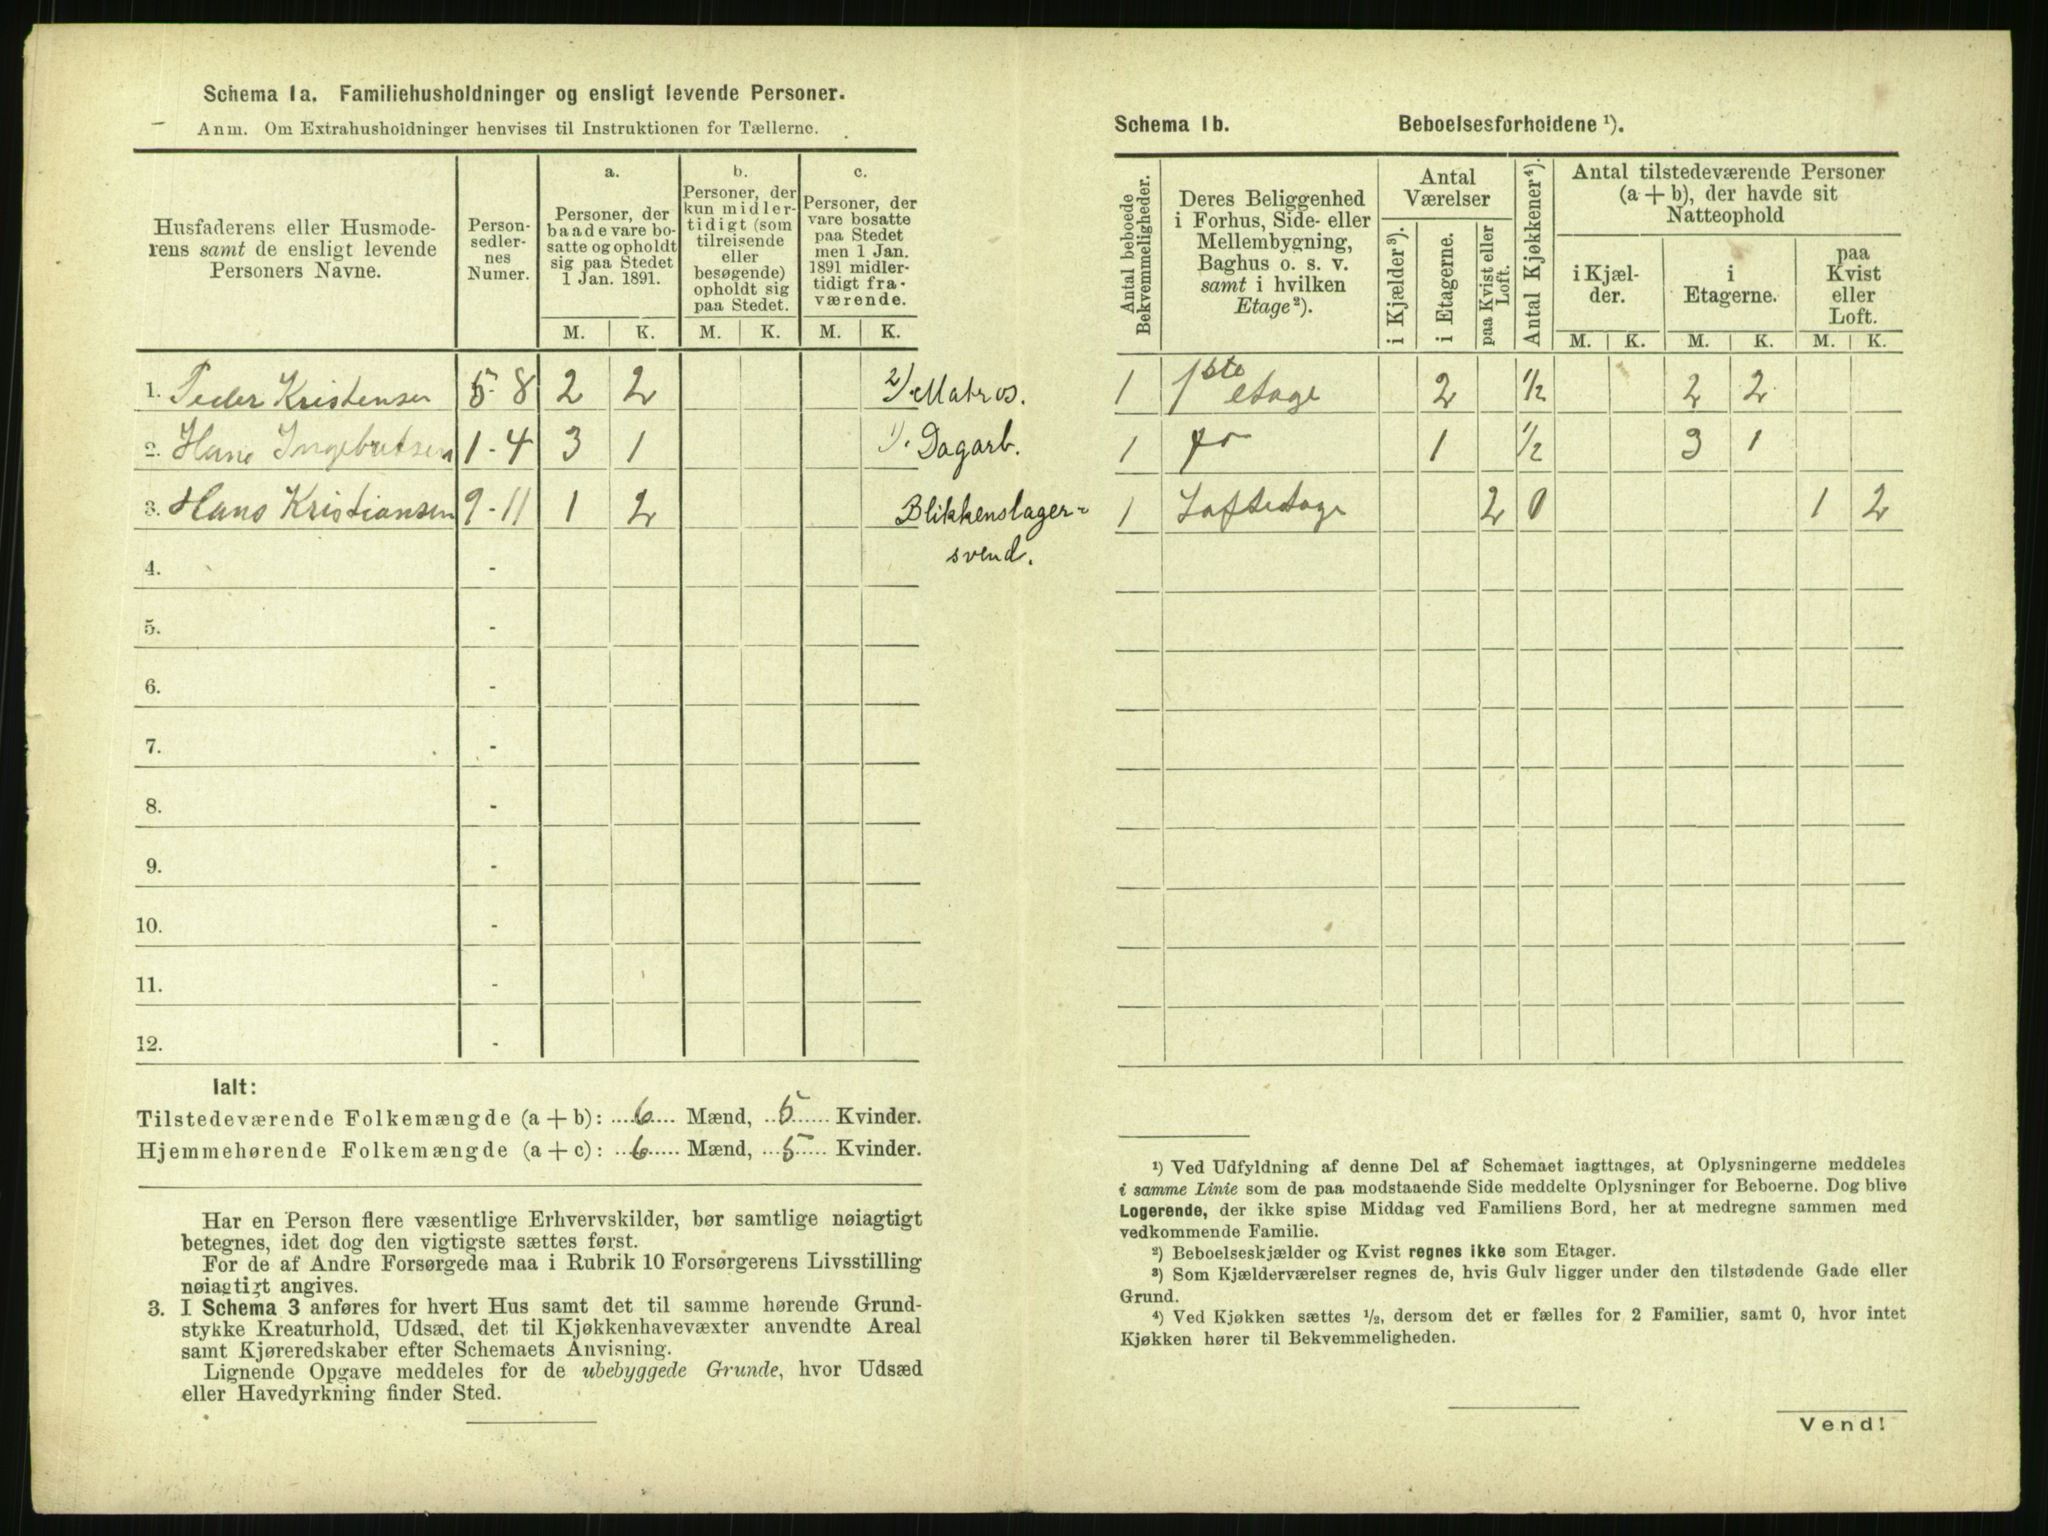 Schema 1a. Familiehusholdninger og ensligt levende Personer.
Anm. Om Extrahusholdninger henvises til Instruktionen for Tællerne.
Husfaderens eller Husmode-
rens samt de ensligt levende
Personers Navne.
Person-
sedler-
nes
Numer.
a.
Personer, der
baade vare bo-
satte og opholdt
sig paa Stedet
1 Jan. 1891.
b.
Personer, der
kun midler-
tidigt (som
tilreisende
eller
besøgende)
opholdt sig
paa Stedet.
c.
Personer, der
vare bosatte
paa Stedet
men 1 Jan.
1891 midler-
tidigt fra-
værende.
M. K. M. K. M. K.
1. Peder Kristensen 5-8 2 2 2/ Matros.
2. Hans Ingebretsen 1-4 3 1 1/. Dagarb.
3. Hans Kristiansen 9-11 1 2 Blikkenslager-
svend.
4. -
5. -
6. -
7. -
8. -
9. -
10. -
11. -
12. -
Ialt:
Tilstedeværende Folkemængde (a + b): 6 Mænd, 5 Kvinder.
Hjemmehørende Folkemængde (a + c): 6 Mænd, 5 Kvinder.
Har en Person flere væsentlige Erhvervskilder, bør samtlige nøiagtigt
betegnes, idet dog den vigtigste sættes først.
For de af Andre Forsørgede maa i Rubrik 10 Forsørgerens Livsstilling
nøiagtigt angives.
3. I Schema 3 anføres for hvert Hus samt det til samme hørende Grund-
stykke Kreaturhold, Udsæd, det til Kjøkkenhavevæxter anvendte Areal
samt Kjøreredskaber efter Schemaets Anvisning.
Lignende Opgave meddeles for de ubebyggede Grunde, hvor Udsæd
eller Havedyrkning finder Sted.
Schema 1b. Beboelsesforholdene ¹).
Antal beboede
Bekvemmeligheder.
Deres Beliggenhed
i Forhus, Side- eller
Mellembygning,
Baghus o. s. v.
samt i hvilken
Etage²).
Antal
Værelser
i Kjælder³).
i Etagerne.
paa Kvist eller
Loft.
Antal Kjøkkener⁴).
Antal tilstedeværende Personer
(a + b), der havde sit
Natteophold
i Kjæl-
der.
i
Etagerne.
paa
Kvist
eller
Loft.
M. K. M. K. M. K.
1 1ste etage 2 ½ 2 2
1 do 1 ½ 3 1
1 Loftetage 2 0 1 2
¹) Ved Udfyldning af denne Del af Schemaet iagttages, at Oplysningerne meddeles
i samme Linie som de paa modstaaende Side meddelte Oplysninger for Beboerne. Dog blive
Logerende, der ikke spise Middag ved Familiens Bord, her at medregne sammen med
vedkommende Familie.
²) Beboelseskjælder og Kvist regnes ikke som Etager.
³) Som Kjælderværelser regnes de, hvis Gulv ligger under den tilstødende Gade eller
Grund.
⁴) Ved Kjøkken sættes ½, dersom det er fælles for 2 Familier, samt 0, hvor intet
Kjøkken hører til Bekvemmeligheden.
Vend!